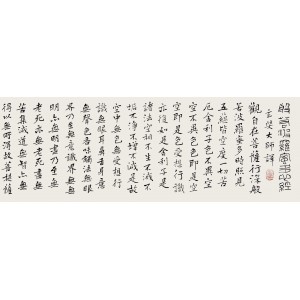 般若波羅蜜多心經
玄奘大師譯
觀自在菩薩行深般
若波羅蜜多時照見
五蘊皆空度一切苦
厄舍利子色不異空
空不異色色即是空
空即是色受想行識
亦復如是舍利子是
諸法空相不生不滅不
垢不淨不增不減是故
空中無色無受想行
識無眼耳鼻舌身意
無色聲香味觸法無眼
界乃至無意識界無無
明亦無無明盡乃至無
老死亦無老死盡無
苦集滅道無智亦無
得以無所得故菩提薩